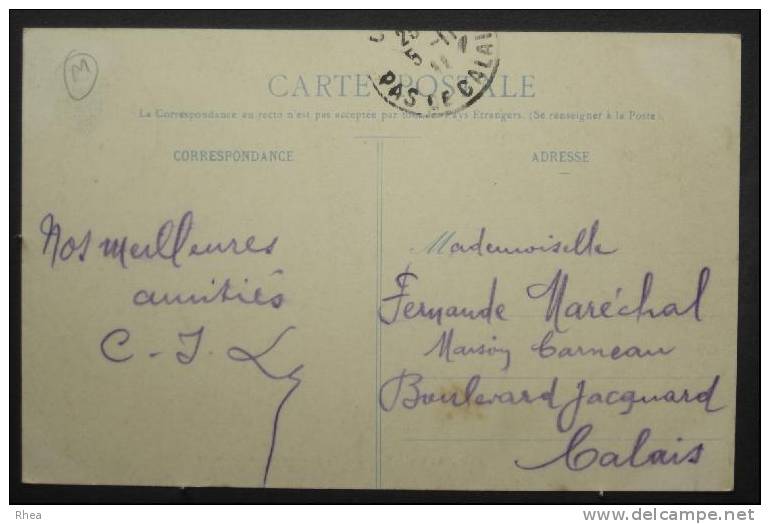 M
25
5 -11
11
PAS DE CALAIS
CARTE POSTALE
La Correspondance au recto n'est pas acceptée par tous les Pays Etrangers. (Se renseigner à la Poste)
CORRESPONDANCE
Nos meilleures
amitiés
C - J.
ADRESSE
Mademoiselle
Fernande Maréchal
Maison Carneau
Boulevard Jacquard
Calais
Rhea
www.delcampe.net